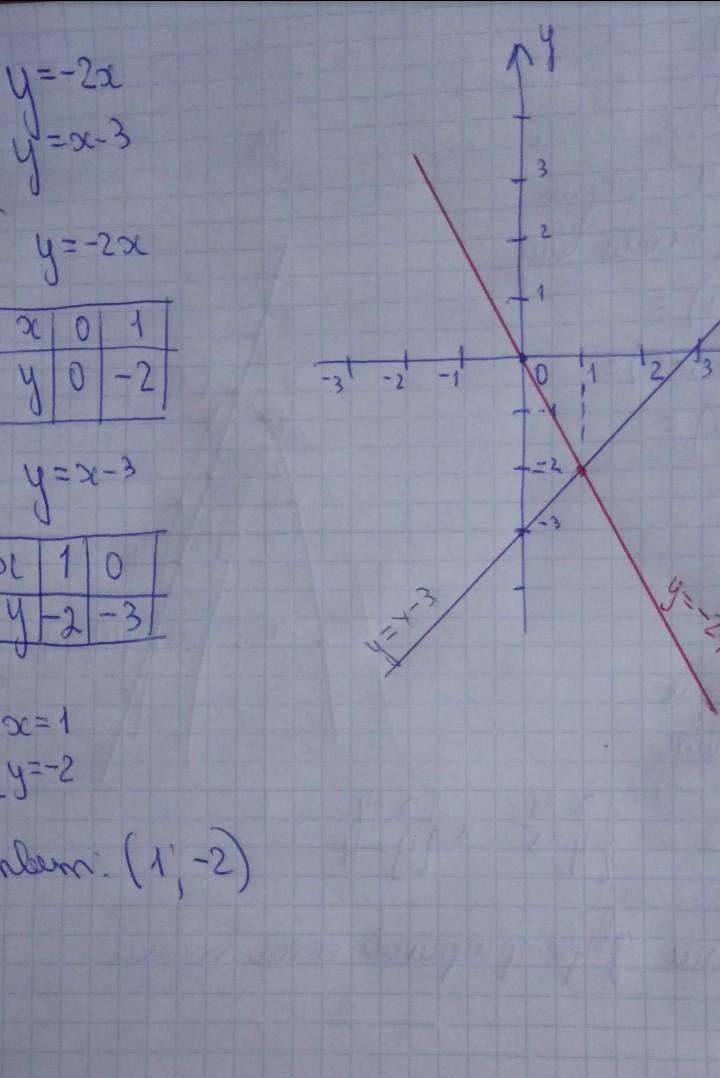 y=-2x
y=x-3
y=-2x
x 0 1
y 0 -2
y=x-3
x 1 0
y -2 -3
x=1
y=-2
(1; -2)
y
3
2
1
-3 -2 -1 0 1 2 3
-1
-2
-3
y=x-3
y=-2x